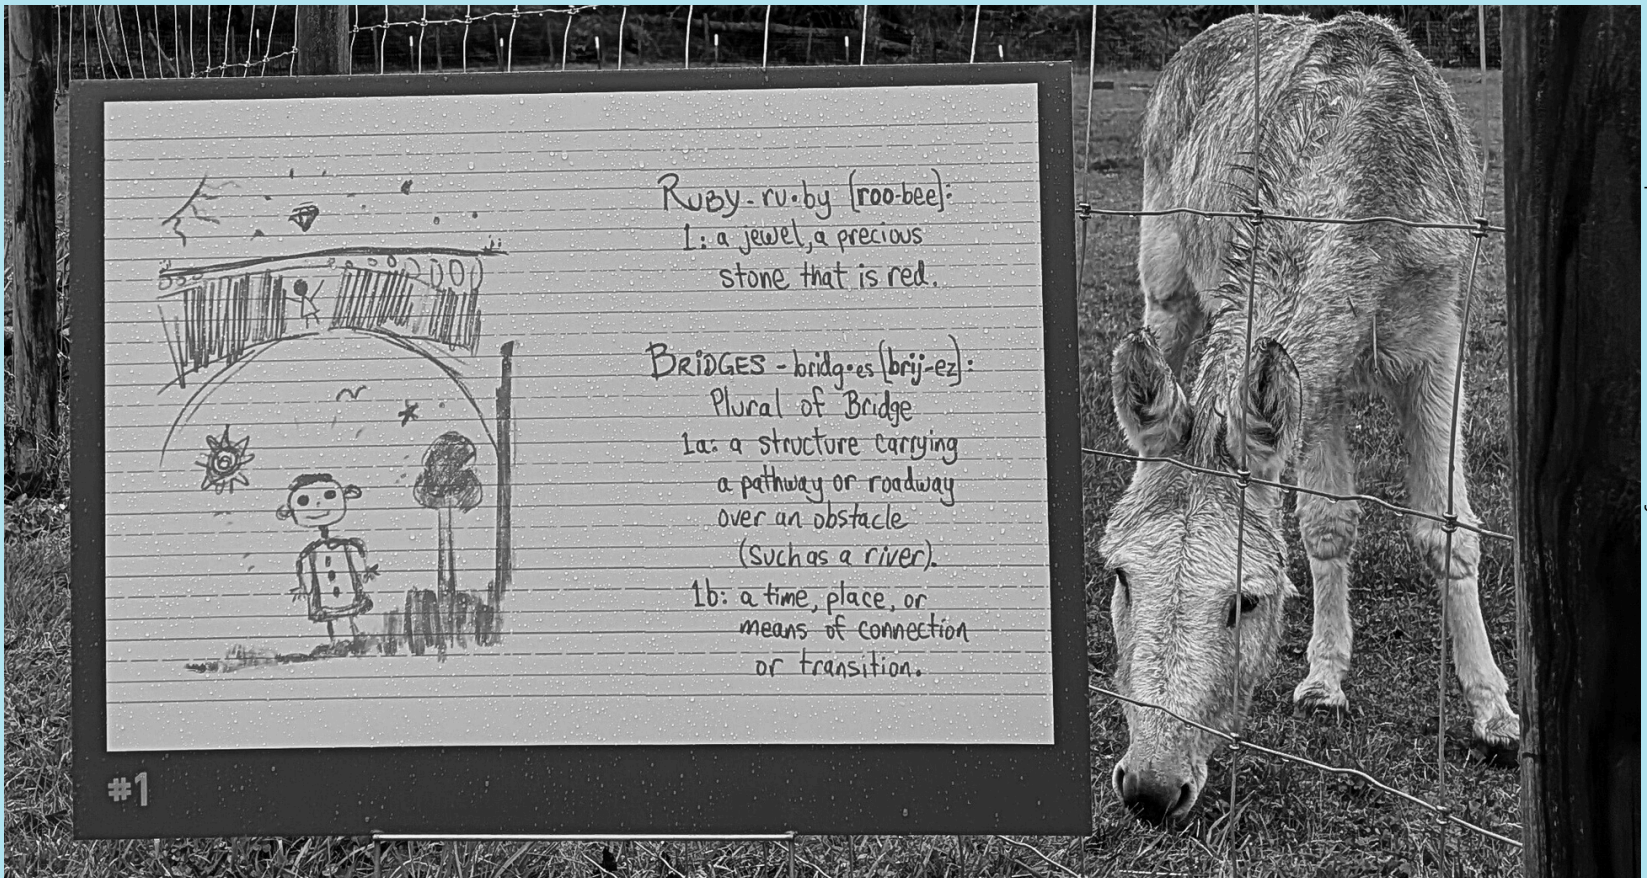 RUBY - ru•by [roo-bee]:
1: a jewel, a precious
stone that is red.
BRIDGES - bridg•es [brij-ez]:
Plural of Bridge
1a: a structure carrying
a pathway or roadway
over an obstacle
(such as a river).
1b: a time, place, or
means of connection
or transition.
#1